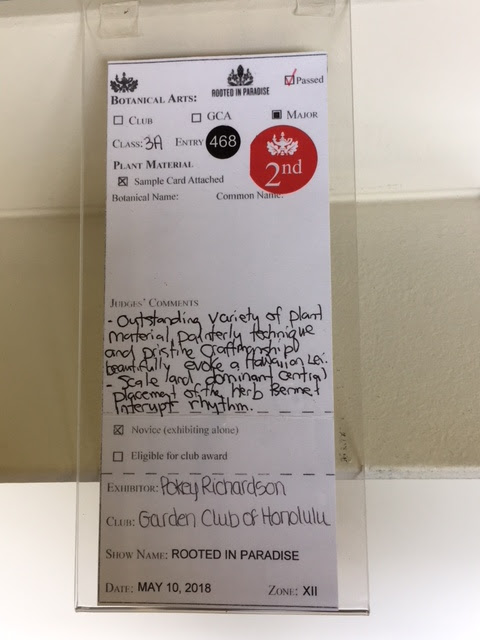 ROOTED IN PARADISE
Passed
BOTANICAL ARTS:
CLUB GCA MAJOR
CLASS: 3A ENTRY 468
2nd
PLANT MATERIAL
Sample Card Attached
Botanical Name: Common Name:
JUDGES' COMMENTS
- Outstanding variety of plant
material, painterly technique
and pristine craftmanship
beautifully evoke a Hawaiian Lei.
- Scale and dominant central
placement of the herb Bennet
interupt rhythm.
Novice (exhibiting alone)
Eligible for club award
EXHIBITOR: Pokey Richardson
CLUB: Garden Club of Honolulu
SHOW NAME: ROOTED IN PARADISE
DATE: MAY 10, 2018 ZONE: XII